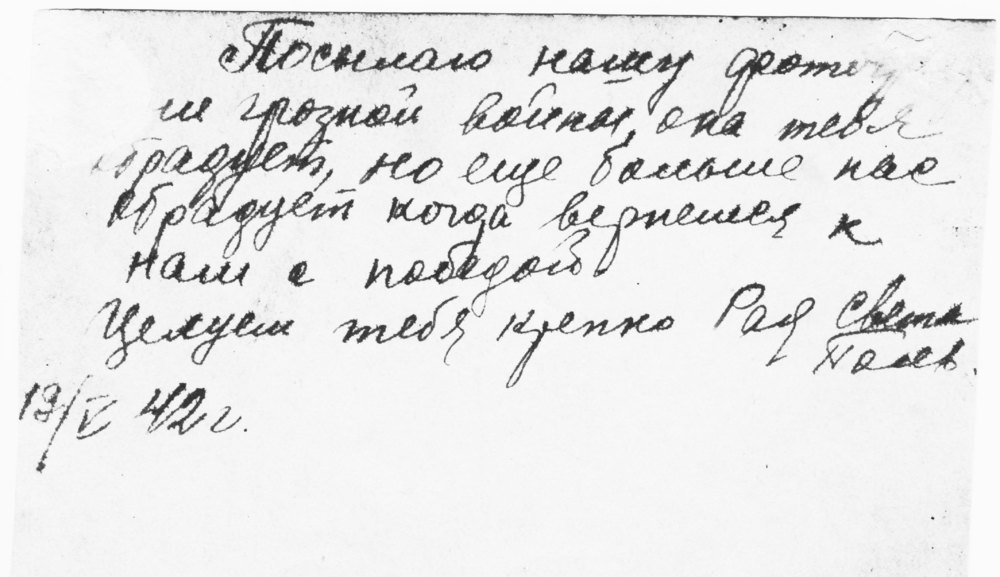 Посылаю нашу фоточку
грозной войны, она тебя
обрадует, но еще больше нас
обрадует когда вернешся к
нам с победой
Целуем тебя крепко Рая Света
19/V 42 г.